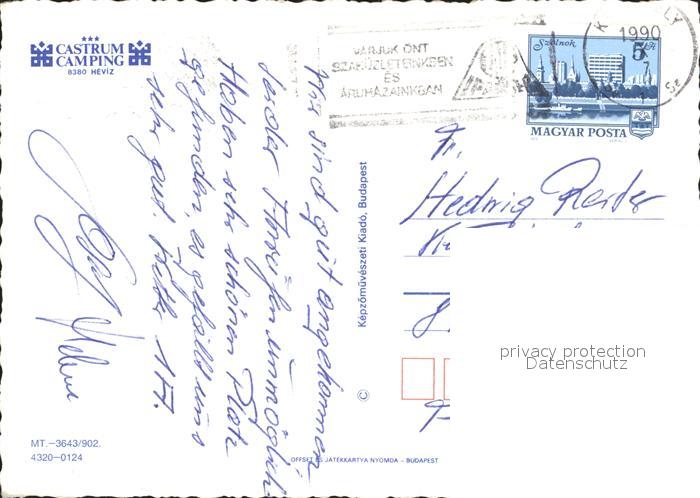 ★★★
CASTRUM
CAMPING
8380 HÉVÍZ
VÁRJUK ÖNT
SZAKÜZLETEINKBEN
ÉS
ÁRUHÁZAINKBAN
1990
Szolnok
5 Ft
MAGYAR POSTA
Wir sind gut angekommen
leider Anrufen unmöglich
Haben sehr schönen Platz
gefunden, es gefällt uns
sehr gut
Fr.
Hedwig Reiter
privacy protection
Datenschutz
Képzőművészeti Kiadó, Budapest
©
MT.–3643/902.
4320–0124
OFFSET ÉS JÁTÉKKÁRTYA NYOMDA – BUDAPEST